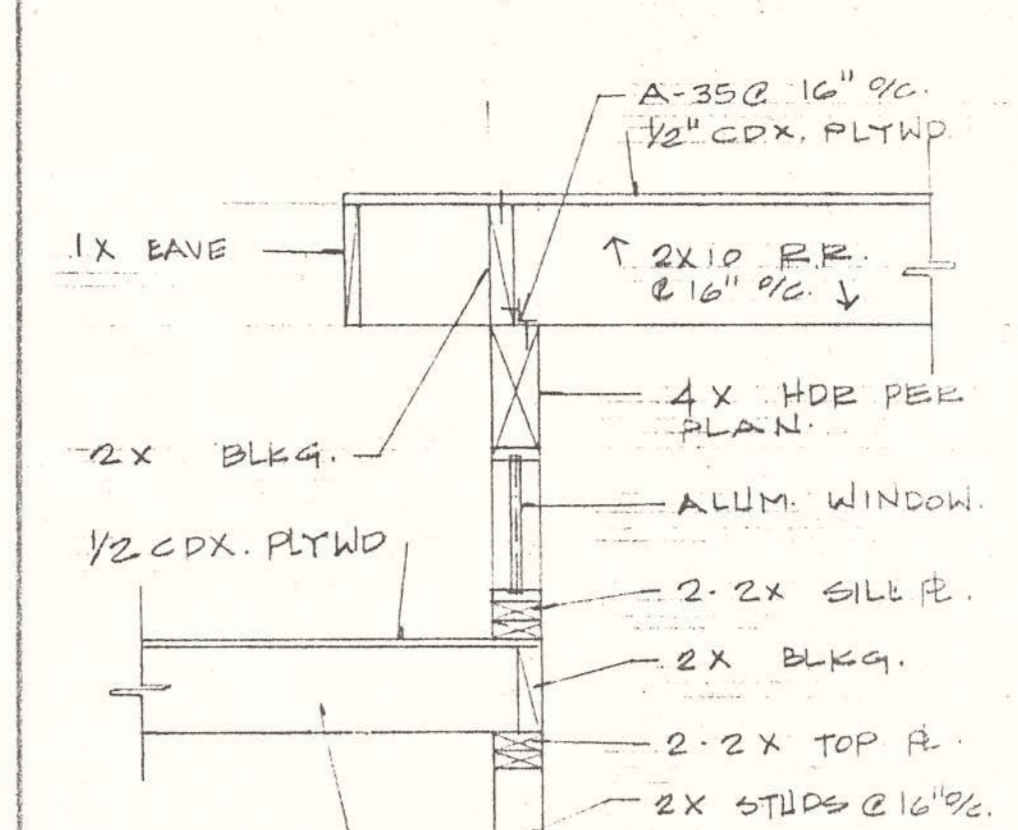 A-35 @ 16" O/C.
1/2" CDX. PLYWD
1X EAVE
2X10 R.R.
@ 16" O/C.
4X HDR PER
PLAN.
2X BLKG.
ALUM. WINDOW.
1/2 CDX. PLYWD
2-2X SILL PL.
2X BLKG.
2-2X TOP PL.
2X STUDS @ 16" O/C.